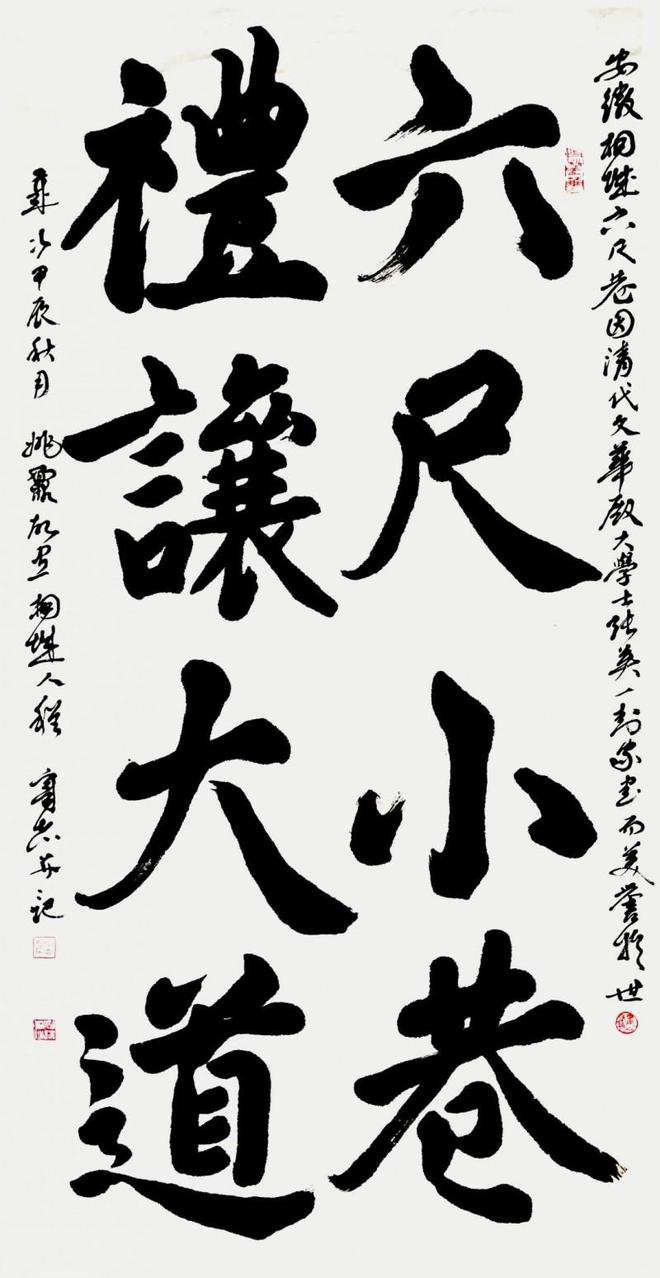 安徽桐城六尺巷因清代文華殿大學士張英一封家書而美譽於世
六尺小巷
禮讓大道
歲次甲辰秋月 姚 桐城人 程 并記